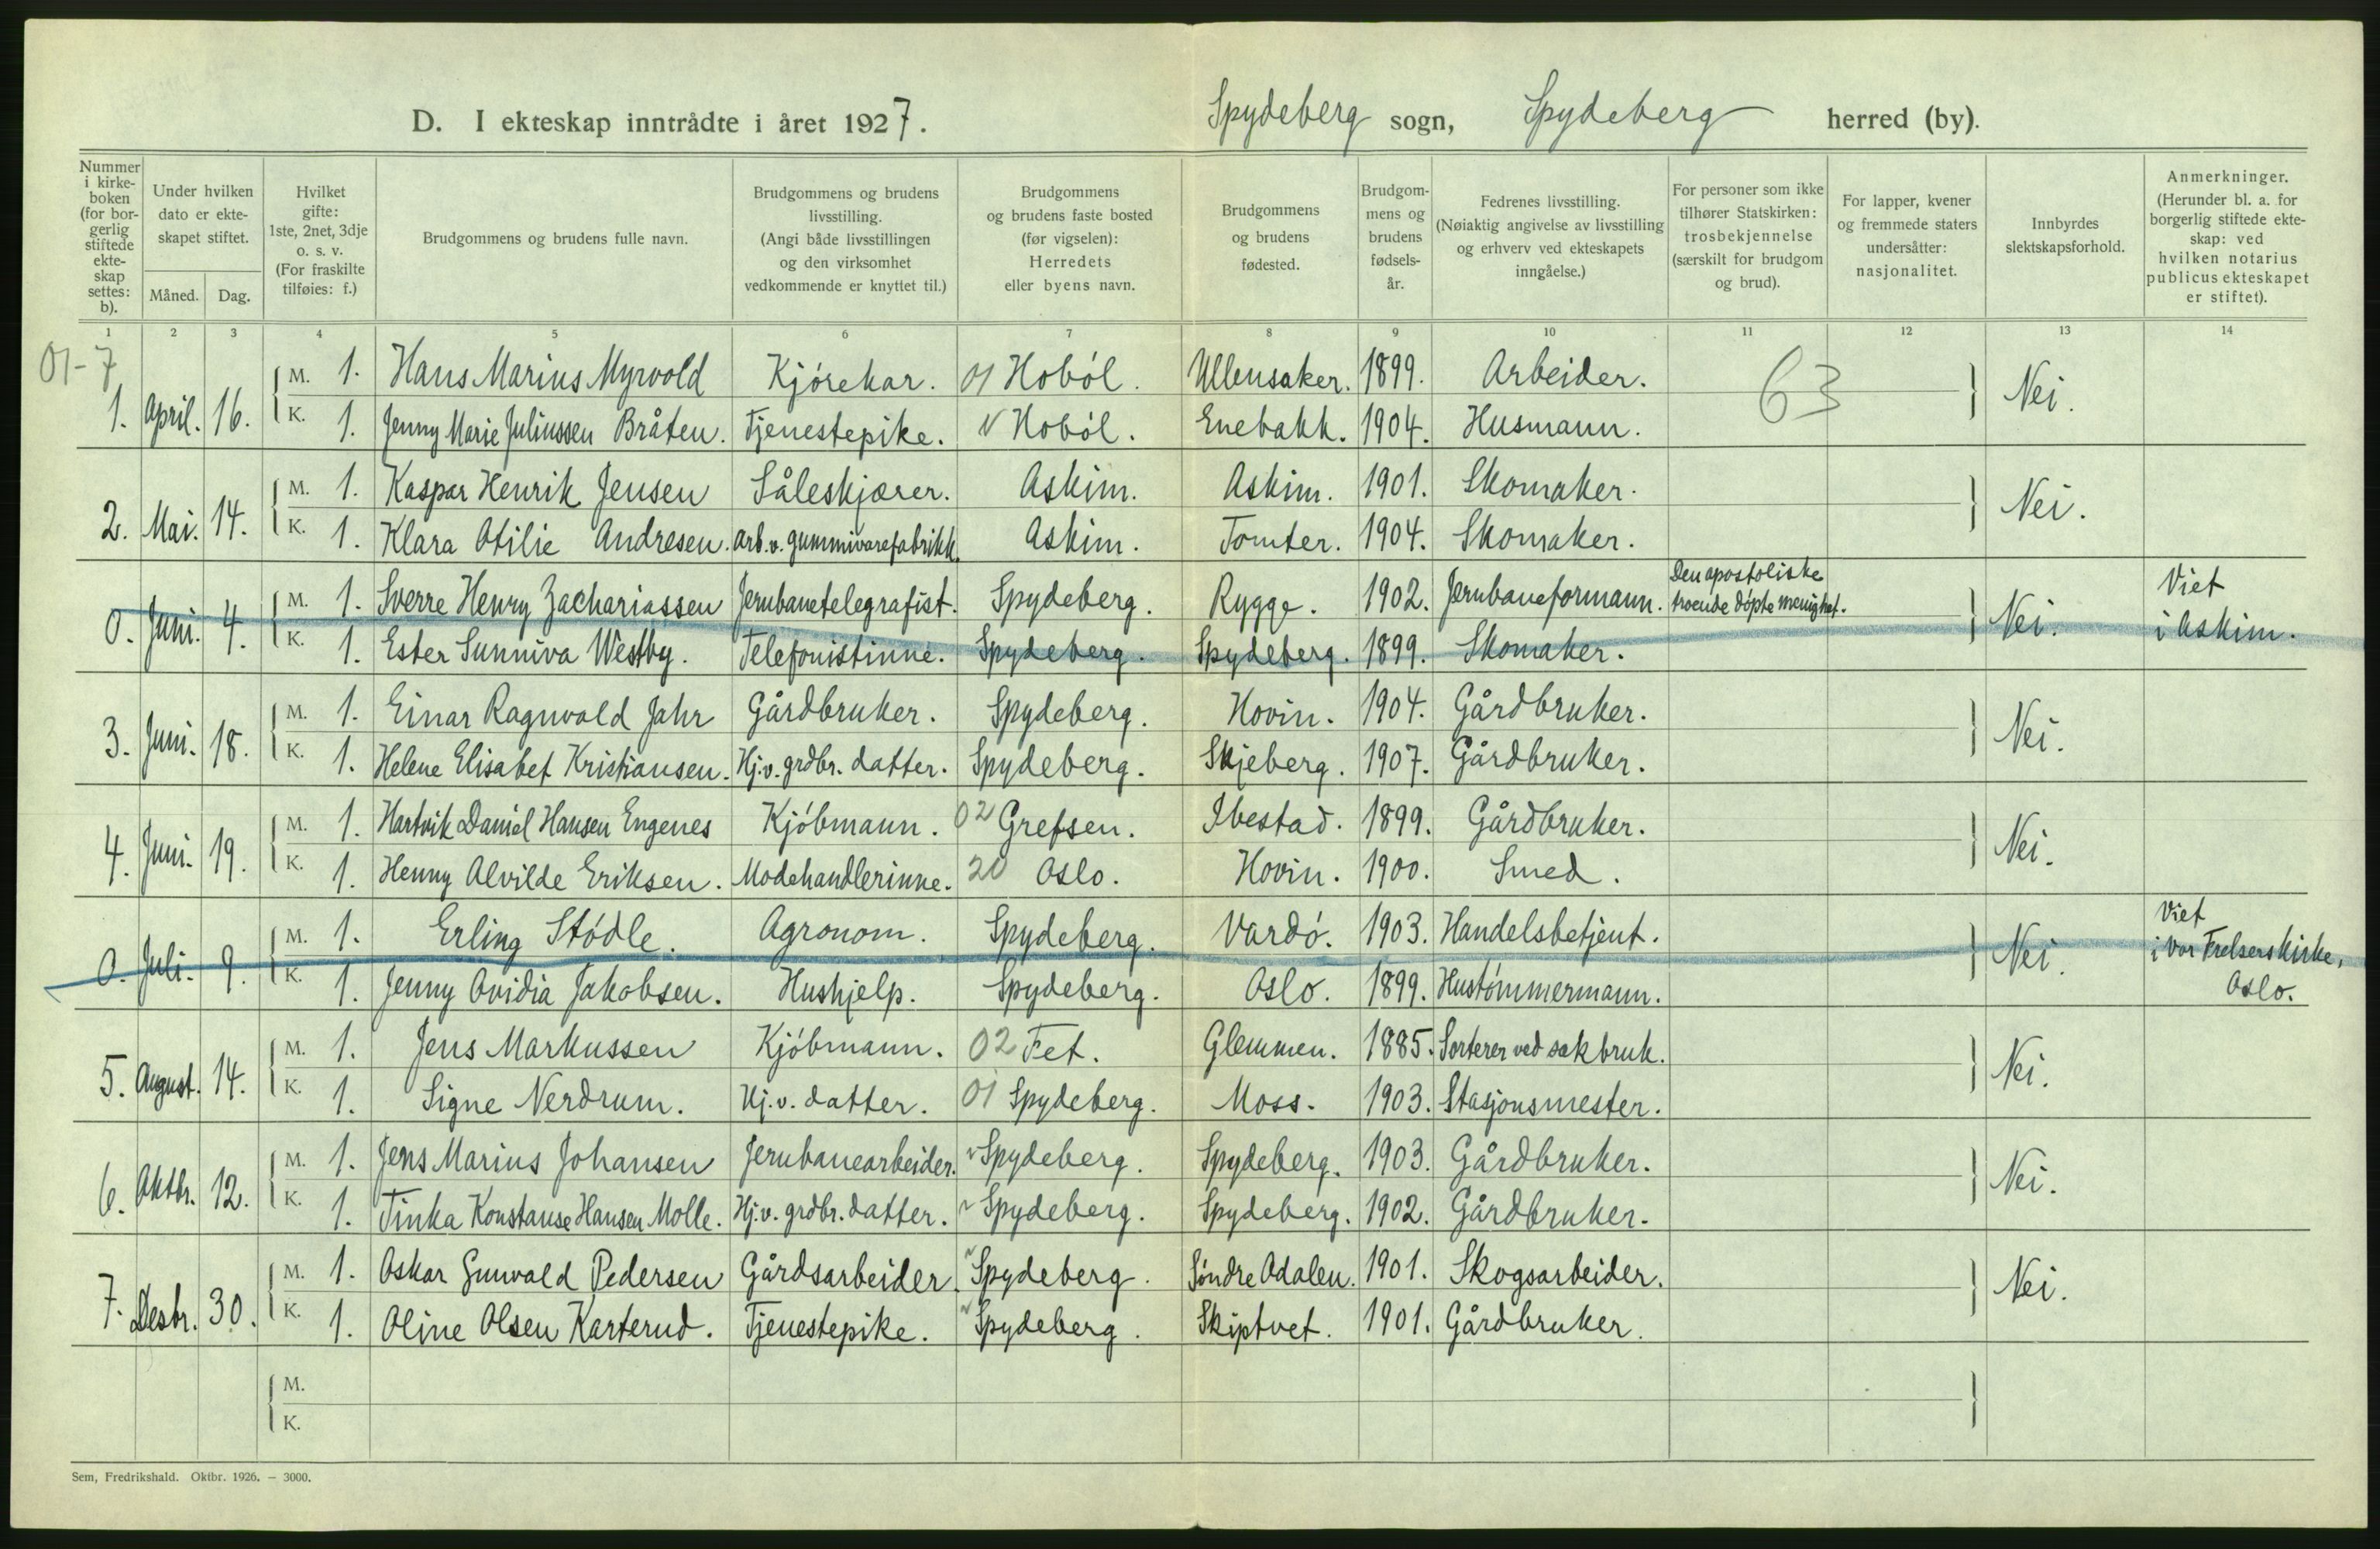 D. I ekteskap inntrådte i året 1927. Spydeberg sogn, Spydeberg herred (by).
Nummer i kirkeboken (for borgerlig stiftede ekteskap settes: b).
Under hvilken dato er ekteskapet stiftet.
Måned. Dag.
Hvilket gifte: 1ste, 2net, 3dje o. s. v. (For fraskilte tilføies: f.)
Brudgommens og brudens fulle navn.
Brudgommens og brudens livsstilling. (Angi både livsstillingen og den virksomhet vedkommende er knyttet til.)
Brudgommens og brudens faste bosted (før vigselen): Herredets eller byens navn.
Brudgommens og brudens fødested.
Brudgommens og brudens fødselsår.
Fedrenes livsstilling. (Nøiaktig angivelse av livsstilling og erhverv ved ekteskapets inngåelse.)
For personer som ikke tilhører Statskirken: trosbekjennelse (særskilt for brudgom og brud).
For lapper, kvener og fremmede staters undersåtter: nasjonalitet.
Innbyrdes slektskapsforhold.
Anmerkninger. (Herunder bl. a. for borgerlig stiftede ekteskap: ved hvilken notarius publicus ekteskapet er stiftet).
1 2 3 4 5 6 7 8 9 10 11 12 13 14
01-7
M. 1. Hans Marius Myrvold Kjörekar. 01 Hoböl. Ullensaker. 1899. Arbeider. 63
1. April. 16. Nei.
K. 1. Jenny Marie Juliussen Bråten. Tjenestepike. v Hoböl. Enebakk. 1904. Husmann.
M. 1. Kaspar Henrik Jensen Såleskjærer. Askim. Askim. 1901. Skomaker.
2. Mai. 14. Nei.
K. 1. Klara Otilie Andresen. arb. v. gummivarefabrikk. Askim. Tomter. 1904. Skomaker.
M. 1. Sverre Henry Zachariassen Jernbanetelegrafist. Spydeberg. Rygge. 1902. Jernbaneformann. Den apostoliske troende döpte menighet. Viet
0. Juni. 4. Nei. i Askim.
K. 1. Ester Sunniva Westby. Telefonistinne. Spydeberg. Spydeberg. 1899. Skomaker.
M. 1. Einar Ragnvald Jahr Gårdbruker. Spydeberg. Hovin. 1904. Gårdbruker.
3. Juni. 18. Nei.
K. 1. Helene Elisabet Kristiansen. Hj. v. grdbr. datter. Spydeberg. Skjeberg. 1907. Gårdbruker.
M. 1. Hartvik Daniel Hansen Engenes Kjöbmann. 02 Grefsen. Ibestad. 1899. Gårdbruker.
4. Juni. 19. Nei.
K. 1. Henny Alvilde Eriksen. Modehandlerinne. 20 Oslo. Hovin. 1900. Smed.
M. 1. Erling Stödle. Agronom. Spydeberg. Vardö. 1903. Handelsbetjent. Viet
0. Juli. 9. Nei. i Vor Frelsers kirke,
K. 1. Jenny Ovidia Jakobsen. Hushjelp. Spydeberg. Oslo. 1899. Hustömmermann. Oslo.
M. 1. Jens Markussen Kjöbmann. 02 Fet. Glemmen. 1885. Sorterer ved sakbruk.
5. August. 14. Nei.
K. 1. Signe Nerdrum. Hj. v. datter. 01 Spydeberg. Moss. 1903. Stasjonsmester.
M. 1. Jens Marius Johansen Jernbanearbeider. v Spydeberg. Spydeberg. 1903. Gårdbruker.
6. Oktbr. 12. Nei.
K. 1. Tinka Konstanse Hansen Molle. Hj. v. grdbr. datter. v Spydeberg. Spydeberg. 1902. Gårdbruker.
M. 1. Oskar Gunvald Pedersen Gårdsarbeider. v Spydeberg. Söndre Odalen. 1901. Skogsarbeider.
7. Desbr. 30. Nei.
K. 1. Oline Olsen Karterud. Tjenestepike. v Spydeberg. Skiptvet. 1901. Gårdbruker.
M.
K.
Sem, Fredrikshald. Oktbr. 1926. — 3000.